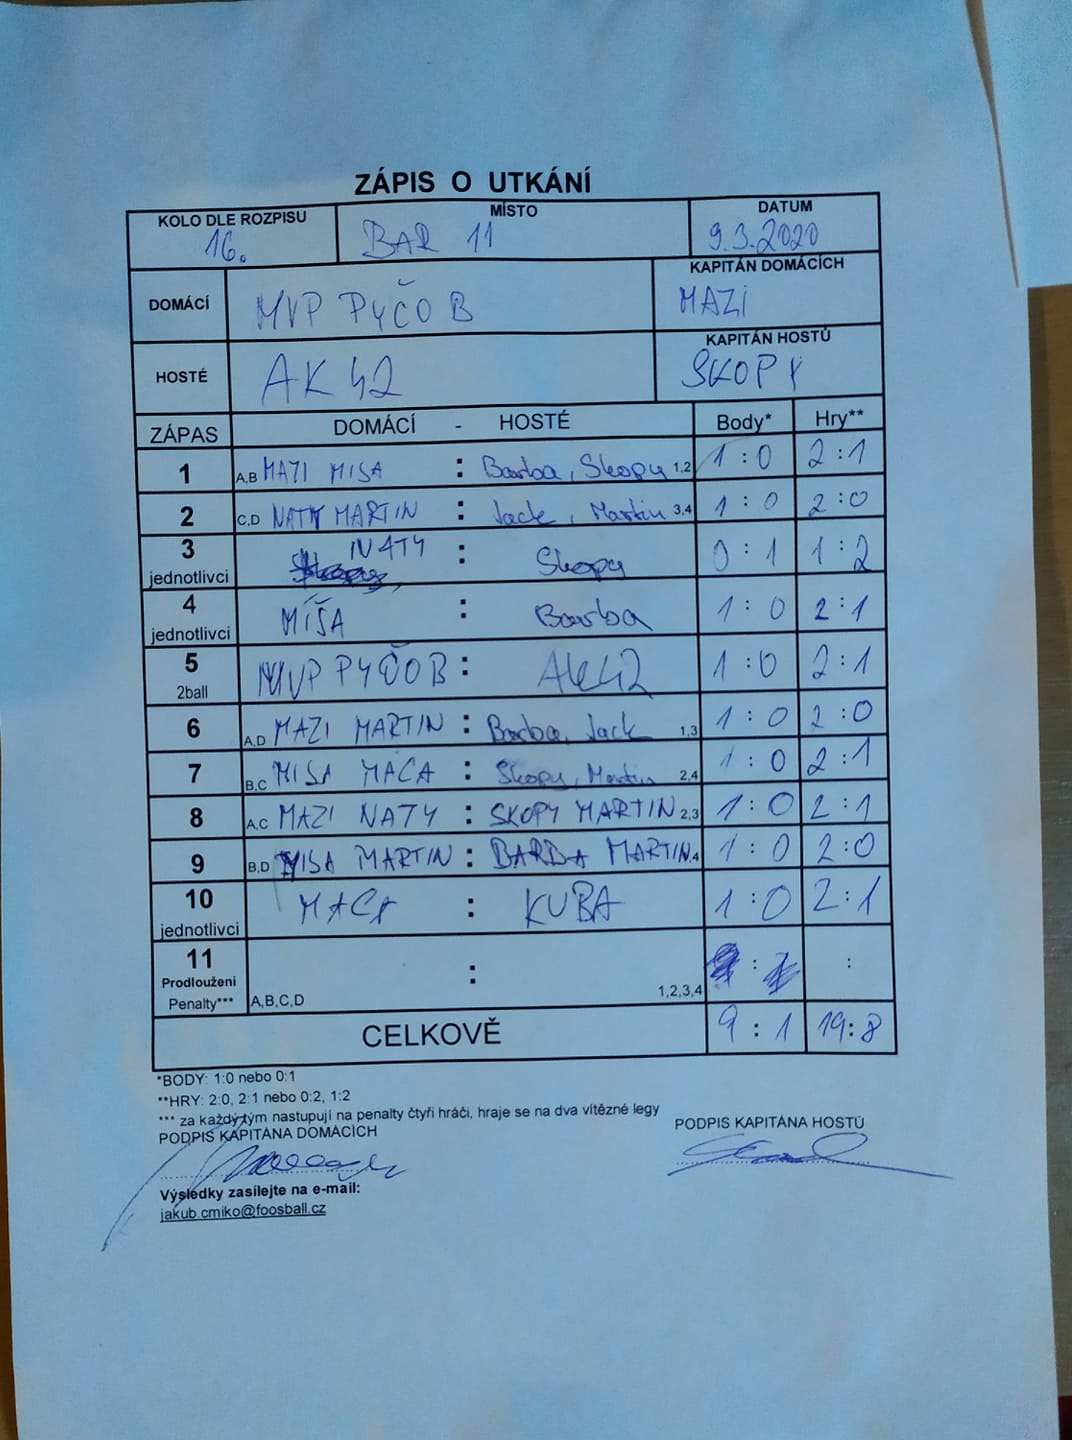 ZÁPIS O UTKÁNÍ
KOLO DLE ROZPISU MÍSTO DATUM
16. BAR 11 9.3.2020
DOMÁCÍ MVP PYČO B KAPITÁN DOMÁCÍCH
MAZI
HOSTÉ AK42 KAPITÁN HOSTŮ
SKOPY
ZÁPAS DOMÁCÍ - HOSTÉ Body* Hry**
1 A,B MAZI MISA : Barba, Skopy 1,2 1:0 2:1
2 C,D NATY MARTIN : Jack, Martin 3,4 1:0 2:0
3 jednotlivci NATY : Skopy 0:1 1:2
4 jednotlivci MÍŠA : Barba 1:0 2:1
5 2ball MVP PYČO B : AK42 1:0 2:1
6 A,D MAZI MARTIN : Barba, Jack 1,3 1:0 2:0
7 B,C MISA MACA : Skopy, Martin 2,4 1:0 2:1
8 A,C MAZI NATY : SKOPY MARTIN 2,3 1:0 2:1
9 B,D MISA MARTIN : BARBA MARTIN ,4 1:0 2:0
10 jednotlivci MACA : KUBA 1:0 2:1
11 Prodloužení Penalty*** A,B,C,D : 1,2,3,4 : :
CELKOVĚ 9:1 19:8
*BODY: 1:0 nebo 0:1
**HRY: 2:0, 2:1 nebo 0:2, 1:2
*** za každý tým nastupují na penalty čtyři hráči, hraje se na dva vítězné legy
PODPIS KAPITÁNA DOMÁCÍCH PODPIS KAPITÁNA HOSTŮ
Výsledky zasílejte na e-mail:
jakub.cmiko@foosball.cz